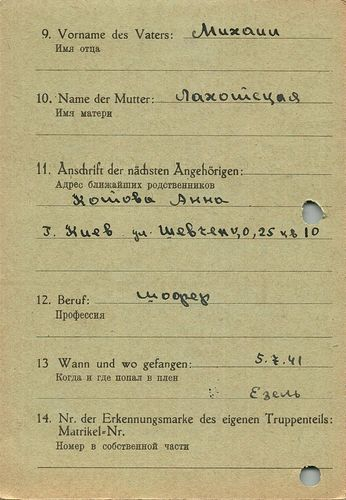 9. Vorname des Vaters: Михаил
Имя отца
10. Name der Mutter: Лахотецкая
Имя матери
11. Anschrift der nächsten Angehörigen:
Адрес ближайших родственников
Котова Анна
г. Киев ул. Шевченко, 25 кв 10
12. Beruf: шофер
Профессия
13 Wann und wo gefangen: 5.7.41
Когда и где попал в плен
Езель
14. Nr. der Erkennungsmarke des eigenen Truppenteils:
Matrikel-Nr.
Номер в собственной части